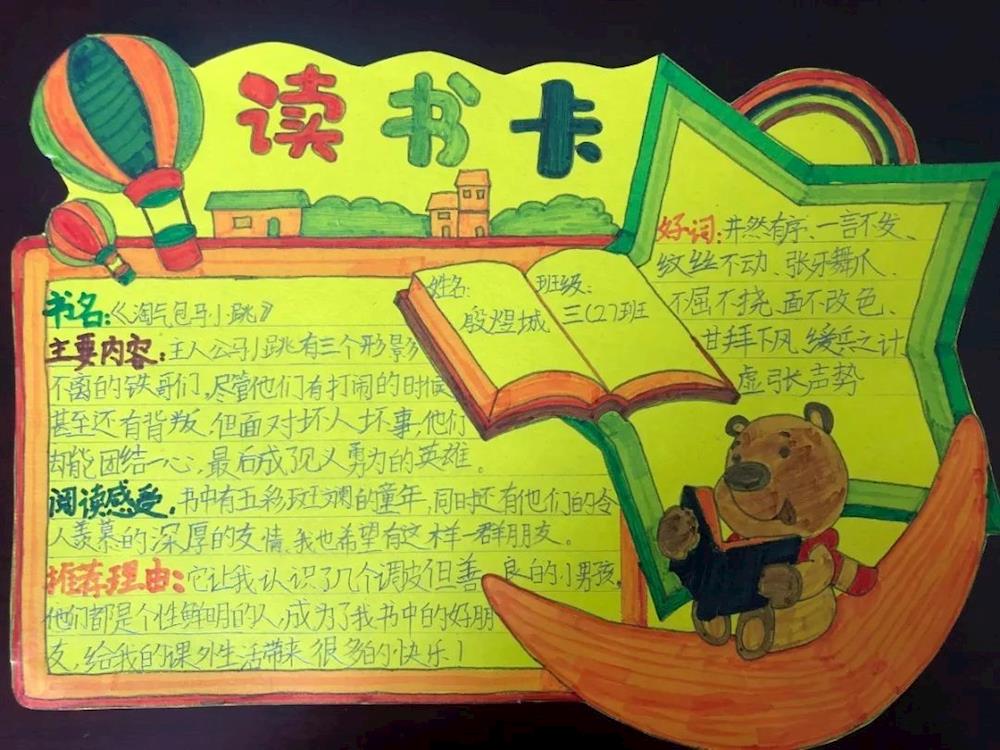 读书卡
书名:《淘气包马小跳》
主要内容:主人公马小跳有三个形影
不离的铁哥们,尽管他们有打闹的时候
甚至还有背叛,但面对坏人坏事,他们
却能团结一心,最后成了见义勇为的英雄。
阅读感受,书中有五彩斑斓的童年,同时还有他们的令
人羡慕的深厚的友情、我也希望有这样一群朋友。
推荐理由:它让我认识了几个调皮但善良的小男孩,
他们都是个性鲜明的人,成为了我书中的好朋
友,给我的课外生活带来很多的小快乐!
姓名:
殷煜城
班级:
三(2)班
好词:井然有序、一言不发、
纹丝不动、张牙舞爪、
不屈不挠、面不改色、
甘拜下风、缓兵之计
虚张声势